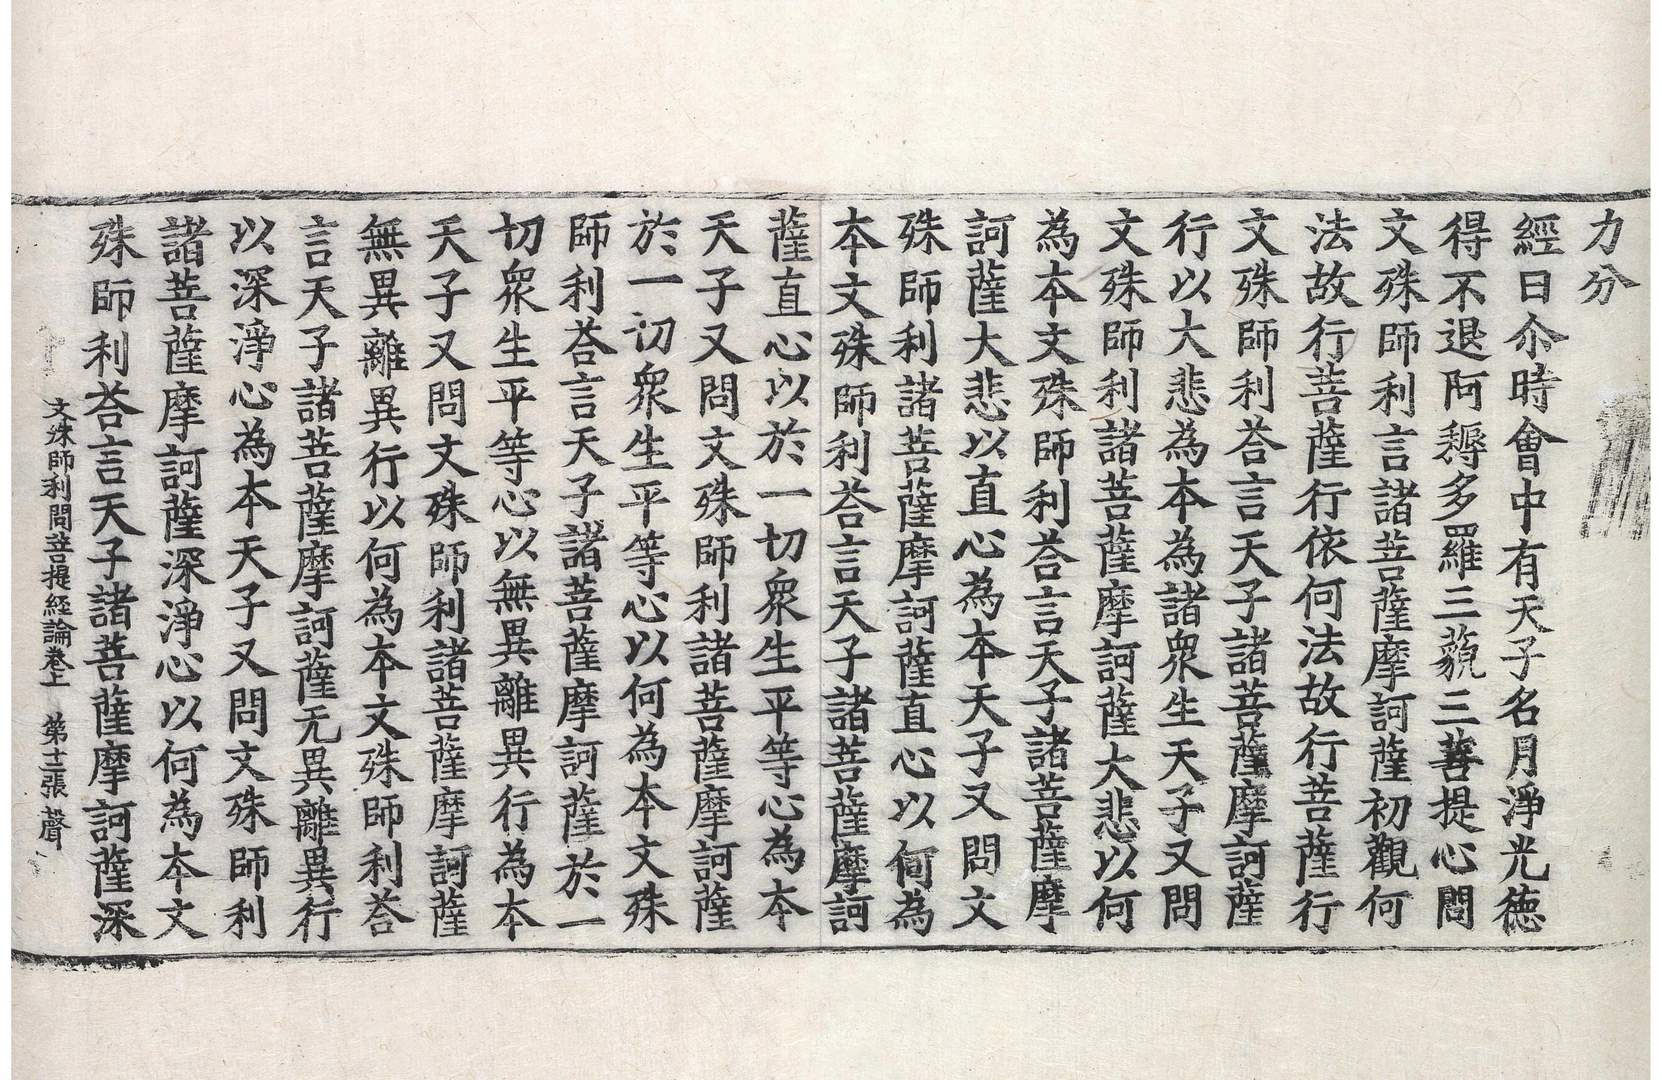 力分
經曰尒時會中有天子名月淨光德
得不退阿耨多羅三藐三菩提心問
文殊師利言諸菩薩摩訶薩初觀何
法故行菩薩行依何法故行菩薩行
文殊師利荅言天子諸菩薩摩訶薩
行以大悲為本為諸衆生天子又問
文殊師利諸菩薩摩訶薩大悲以何
為本文殊師利荅言天子諸菩薩摩
訶薩大悲以直心為本天子又問文
殊師利諸菩薩摩訶薩直心以何為
本文殊師利荅言天子諸菩薩摩訶
薩直心以於一切衆生平等心為本
天子又問文殊師利諸菩薩摩訶薩
於一切衆生平等心以何為本文殊
師利荅言天子諸菩薩摩訶薩於一
切衆生平等心以無異離異行為本
天子又問文殊師利諸菩薩摩訶薩
無異離異行以何為本文殊師利荅
言天子諸菩薩摩訶薩无異離異行
以深淨心為本天子又問文殊師利
諸菩薩摩訶薩深淨心以何為本文
殊師利荅言天子諸菩薩摩訶薩深
文殊師利問菩提經論卷上 第十二張 聲